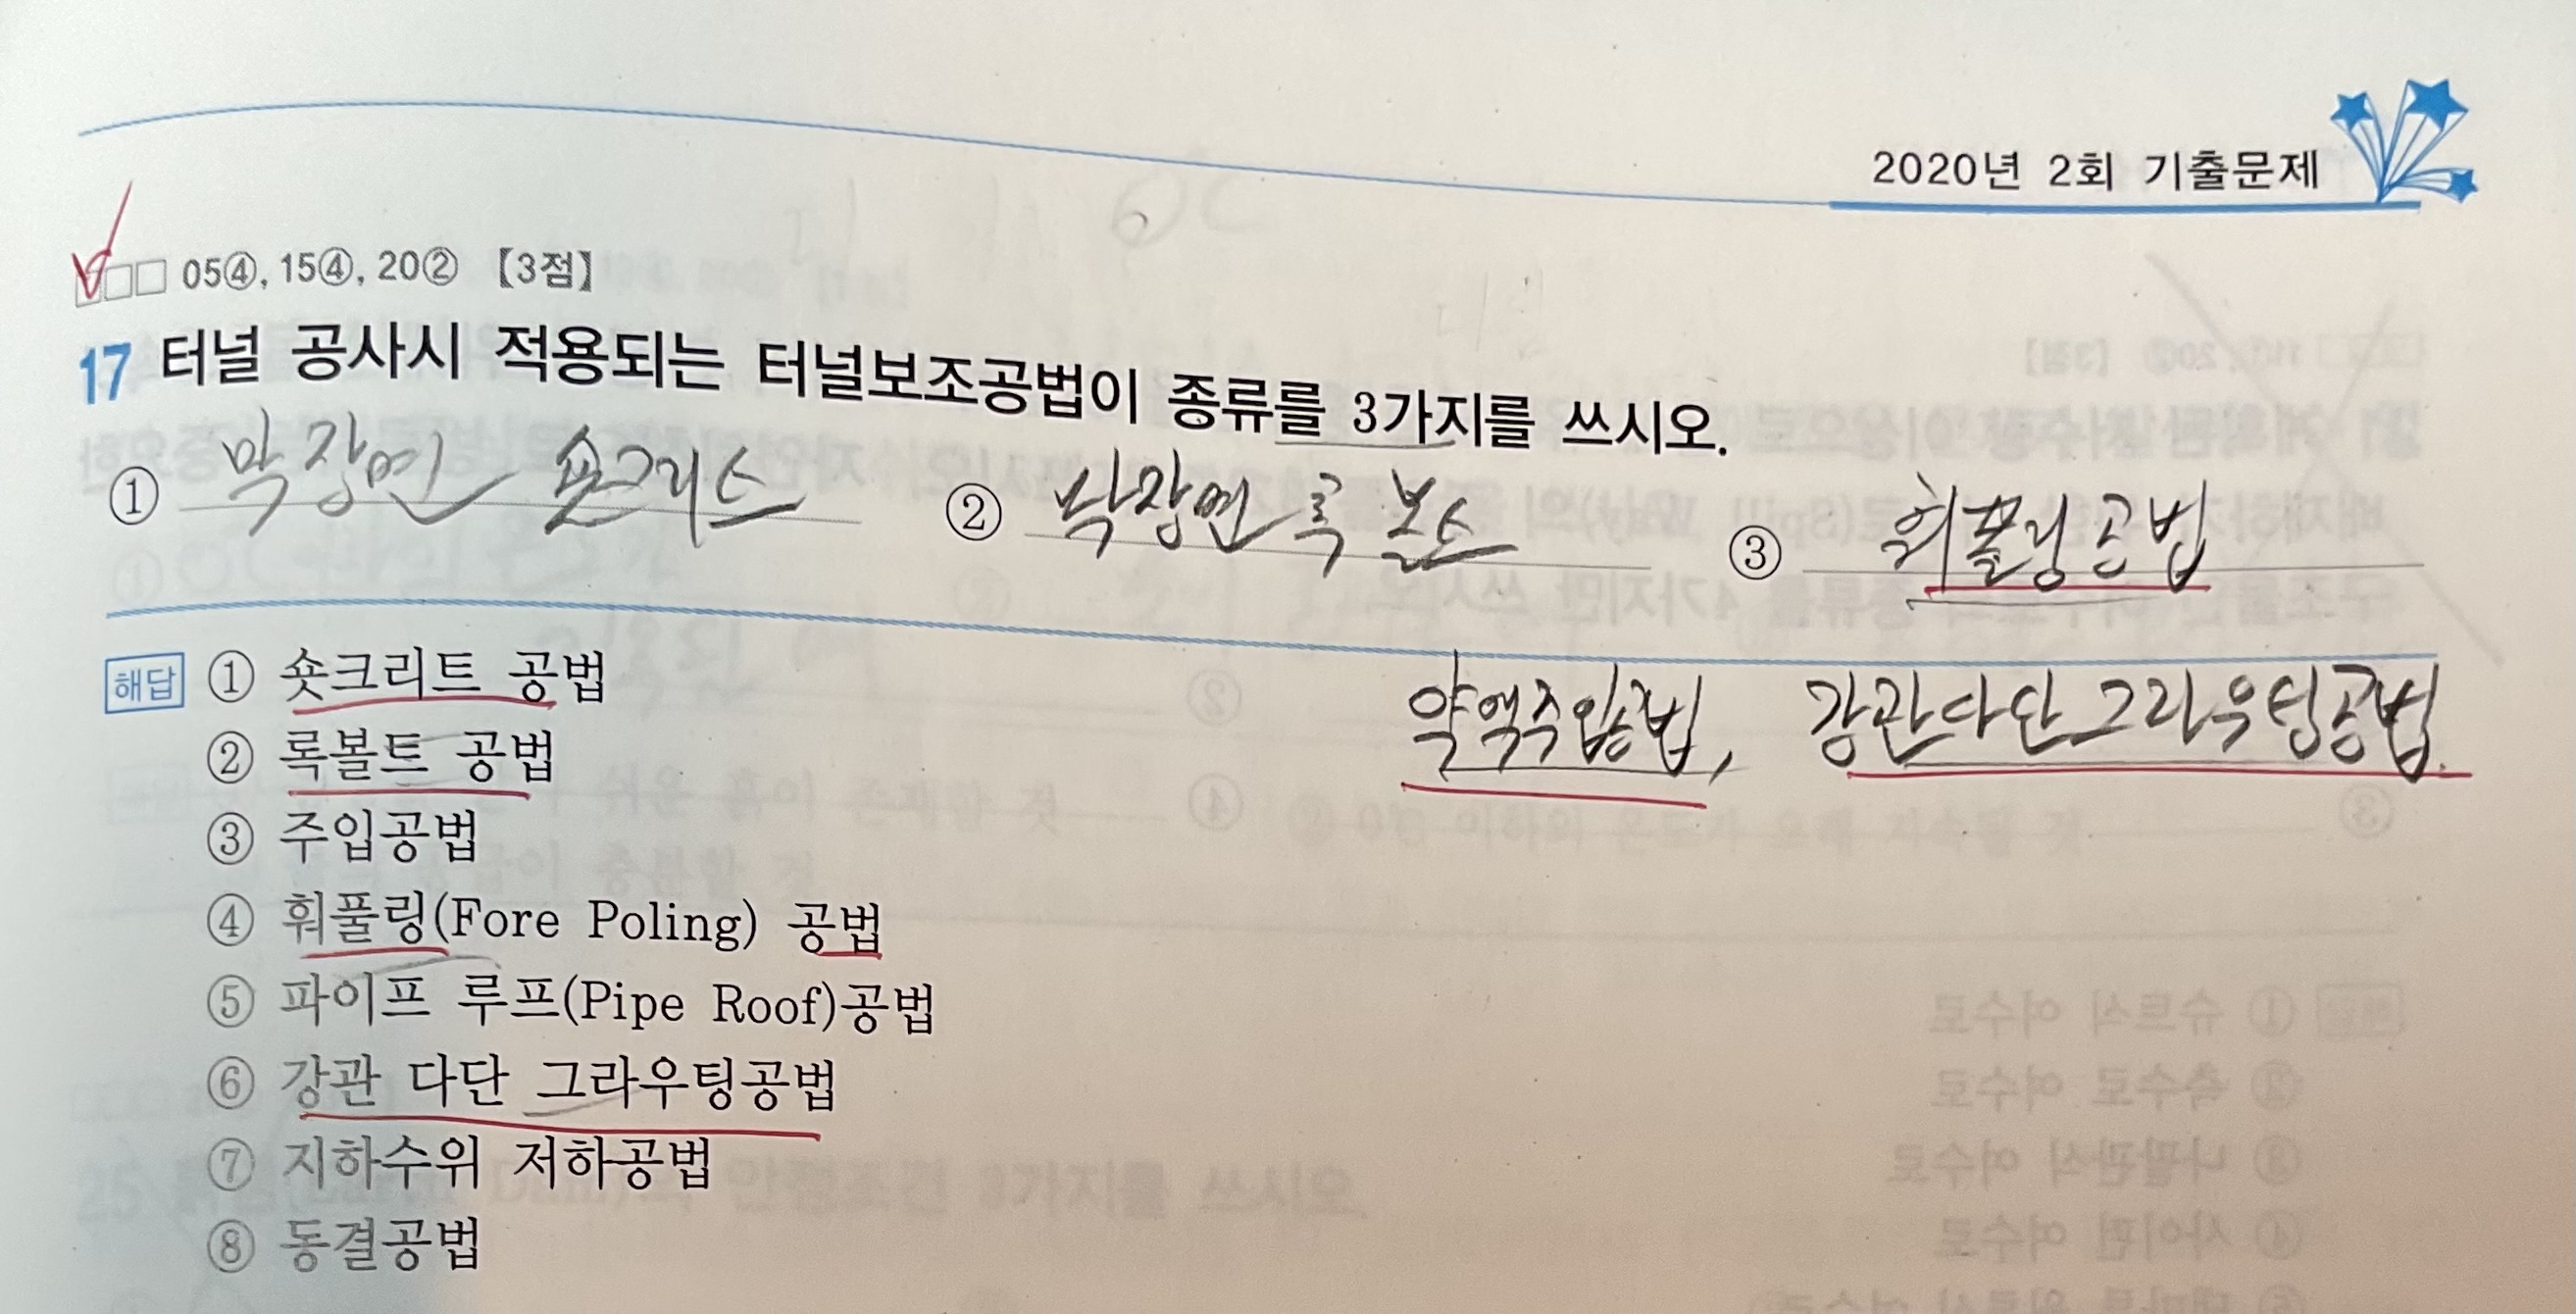 2020년 2회 기출문제
05④, 15④, 20② 【3점】
17 터널 공사시 적용되는 터널보조공법이 종류를 3가지를 쓰시오.
① 막장면 숏크리트 ② 막장면 록 볼트 ③ 훠폴링 공법
약액주입공법, 강관다단그라우팅공법.
해답 ① 숏크리트 공법
② 록볼트 공법
③ 주입공법
④ 훠풀링(Fore Poling) 공법
⑤ 파이프 루프(Pipe Roof)공법
⑥ 강관 다단 그라우팅공법
⑦ 지하수위 저하공법
⑧ 동결공법